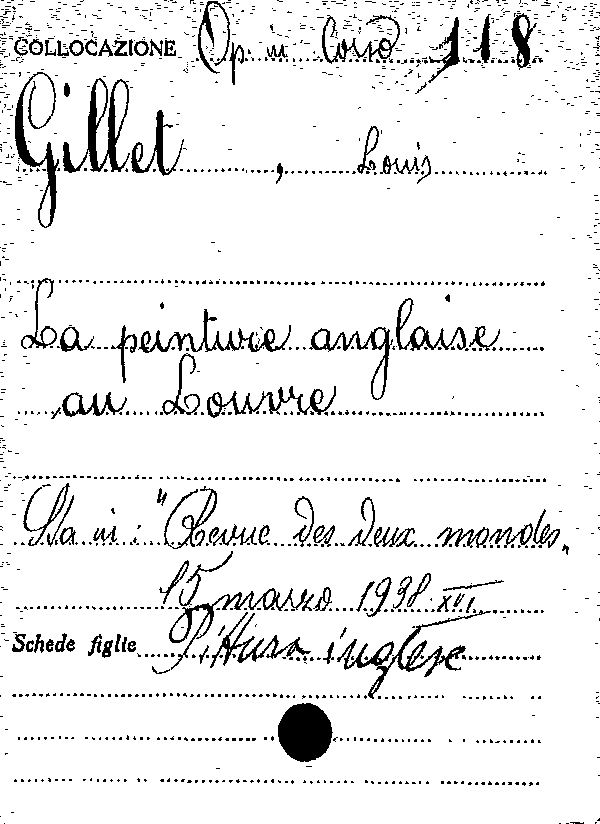 COLLOCAZIONE Op. in Corso 118
Gillet , Louis
La peinture anglaise
au Louvre
Sta in : "Revue des deux mondes„
15 marzo 1938. XVI
Schede figlie Pittura inglese